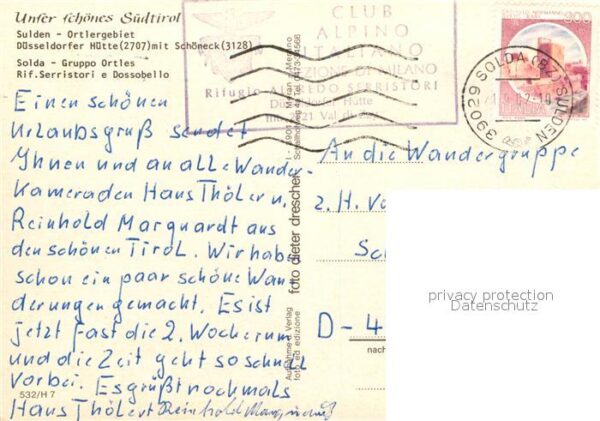 Unser schönes Südtirol
Sulden - Ortlergebiet
Düsseldorfer Hütte(2707)mit Schöneck(3128)
Solda - Gruppo Ortles
Rif.Serristori e Dossobello
CLUB
ALPINO
ITALIANO
SEZIONE DI MILANO
Rifugio ALFREDO SERRISTORI
Düsseldorfer Hütte
800
39029 SOLDA (BZ) SULDEN
Einen schönen
Urlaubsgruß sendet
Ihnen und an alle Wander-
Kameraden Hans Thöler u.
Reinhold Marquardt aus
den schönen Tirol. Wir habe
schon ein paar schöne Wan
derungen gemacht. Es ist
jetzt fast die 2. Woche rum
und die Zeit geht so schnell
vorbei. Es grüßt nochmals
Hans Thöler Reinhold Marquardt
532/H7
Aufnahme u. Verlag
foto ed edizione
foto dieter drescher
Meran - Merano
An die Wandergruppe
z. H. Vo
Sc
D - 4
nach
privacy protection
Datenschutz